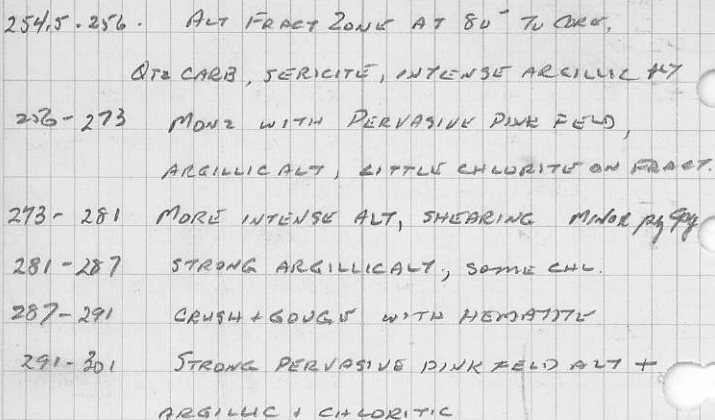 254.5 - 256. ALT FRACT ZONE AT 80° TO CORE,
QTZ CARB, SERICITE, INTENSE ARGILLIC ALT
256-273 MONZ WITH PERVASIVE PINK FELD,
ARGILLIC ALT, LITTLE CHLORITE ON FRACT.
273-281 MORE INTENSE ALT, SHEARING MINOR py
281-287 STRONG ARGILLIC ALT, SOME CHL.
287-291 CRUSH + GOUGE WITH HEMATITE
291-301 STRONG PERVASIVE PINK FELD ALT +
ARGILLIC + CHLORITIC